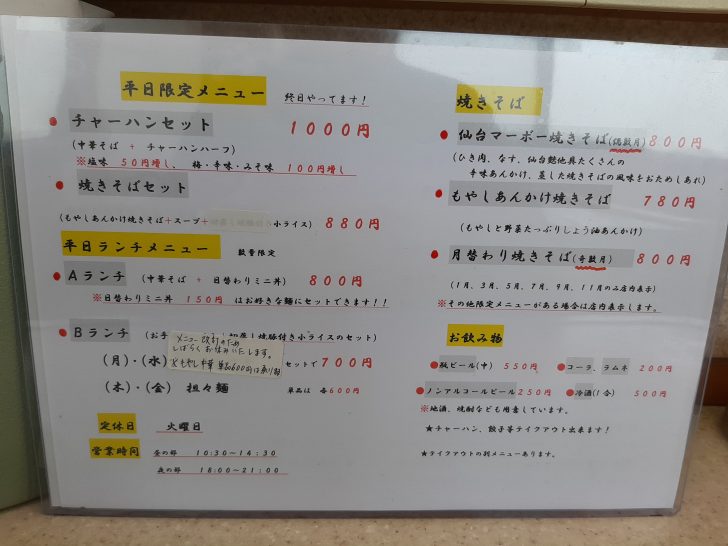 平日限定メニュー　終日やってます！
● チャーハンセット　1000円
(中華そば ＋ チャーハンハーフ)
※塩味 50円増し、 梅・辛味・みそ味 100円増し
● 焼きそばセット
(もやしあんかけ焼きそば＋スープ＋ 小ライス) 880円
平日ランチメニュー　数量限定
● Aランチ (中華そば ＋ 日替わりミニ丼) 800円
※日替わりミニ丼 150円 はお好きな麺にセットできます！！
● Bランチ (お手 焼豚付き小ライスのセット)
メニュー改訂のため
しばらくお休みいたします。
(月)・(水) セットで 700円
(木)・(金) 担々麺　単品は 各600円
定休日　火曜日
営業時間　昼の部 10:30～14:30
夜の部 18:00～21:00
焼きそば
● 仙台マーボー焼きそば(偶数月) 800円
(ひき肉、なす、仙台麩他具たくさんの
辛味あんかけ、蒸した焼きそばの風味をおためしあれ)
● もやしあんかけ焼きそば 780円
(もやしと野菜たっぷりしょう油あんかけ)
● 月替わり焼きそば(奇数月) 800円
(1月、3月、5月、7月、9月、11月のみ店内表示)
※その他限定メニューがある場合は店内表示します。
お飲み物
●瓶ビール(中) 550円　●コーラ、ラムネ 200円
●ノンアルコールビール 250円　●冷酒(1合) 500円
※地酒、焼酎なども用意しています。
★チャーハン、餃子等テイクアウト出来ます！
★テイクアウトの別メニューあります。